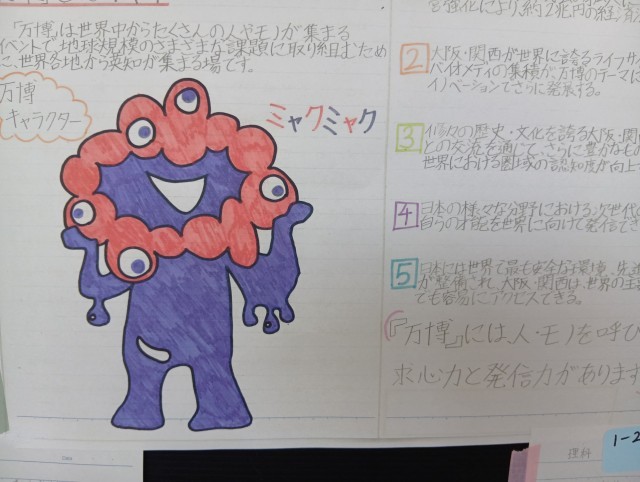 「万博」は世界中からたくさんの人やモノが集まる
イベントで、地球規模のさまざまな課題に取り組むため
に、世界各地から英知が集まる場です。
万博
キャラクター
ミャクミャク
強化により約2兆円の経済
2 大阪・関西が世界に誇るライフサイ
バイオメディの集積が、万博のテーマ
イノベーションでさらに発展する。
3 個々の歴史・文化を誇る大阪・関
との交流を通じて、さらに豊かなもの
世界における圏域の認知度が向上
4 日本の様々な分野における次世代の
自らの才能を世界に向けて発信でき
5 日本には世界で最も安全な環境、先進
が整備され、大阪・関西は、世界の主
ても容易にアクセスできる。
『万博』には人・モノを呼び
求心力と発信力があります
理科
1-2